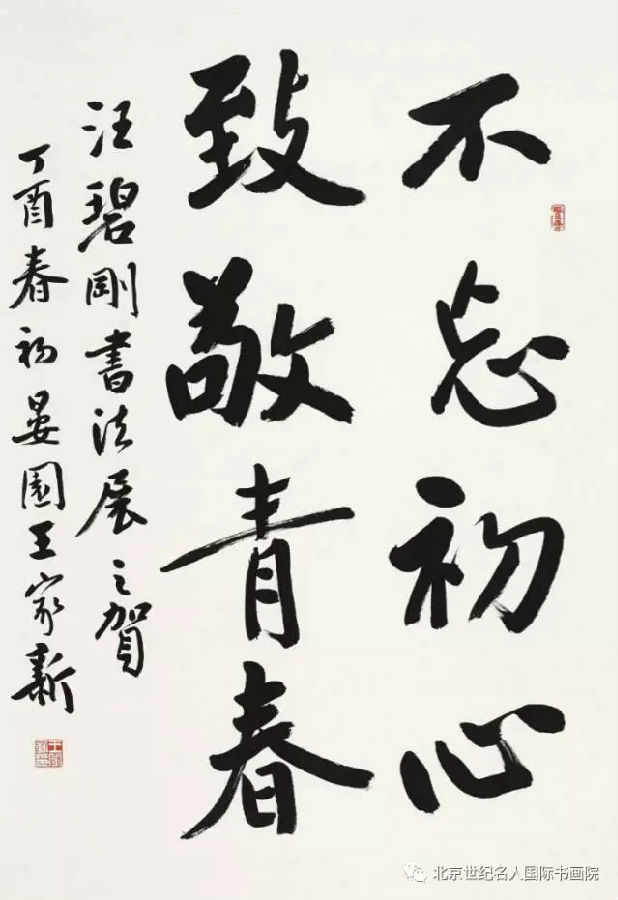 不忘初心
致敬青春
汪碧剛書法展之賀
丁酉春初晏園王家新
北京世纪名人国际书画院